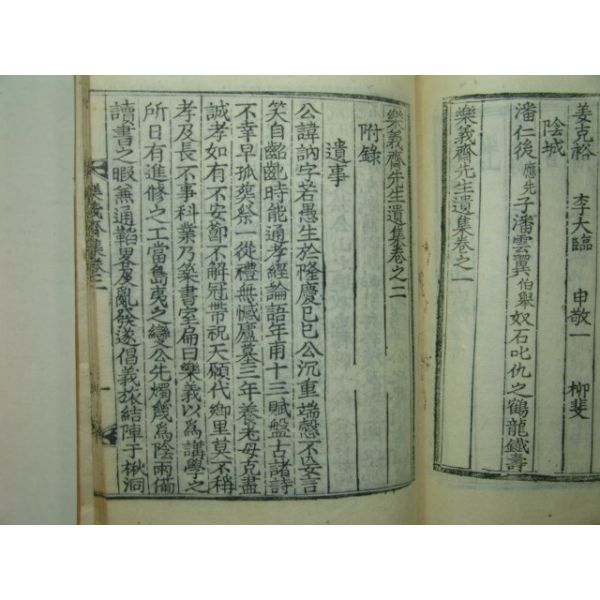 姜克裕 李大臨 申敬一 柳斐
陰城
潘仁後應先子潘雲翼伯擧奴石叱仇之鶴龍鐵壽
樂義齋先生遺集卷之一
樂義齋先生遺集卷之二
附錄
遺事
公諱訥字若愚生於隆慶己巳公沉重端慤不妄言
笑自齠齔時能通孝經論語年甫十三賦盤古諸詩
不幸早孤葬祭一從禮無憾廬墓三年養老母克盡
誠孝如有不安節不解冠帶祝天願代鄕里莫不稱
孝及長不事科業乃築書室扁曰樂義以爲講學之
所日有進修之工當島夷之變公先燭幾爲陰雨備
讀書之暇兼通韜畧及亂發遂倡義旅結陣于楸洞
樂義齋集卷二